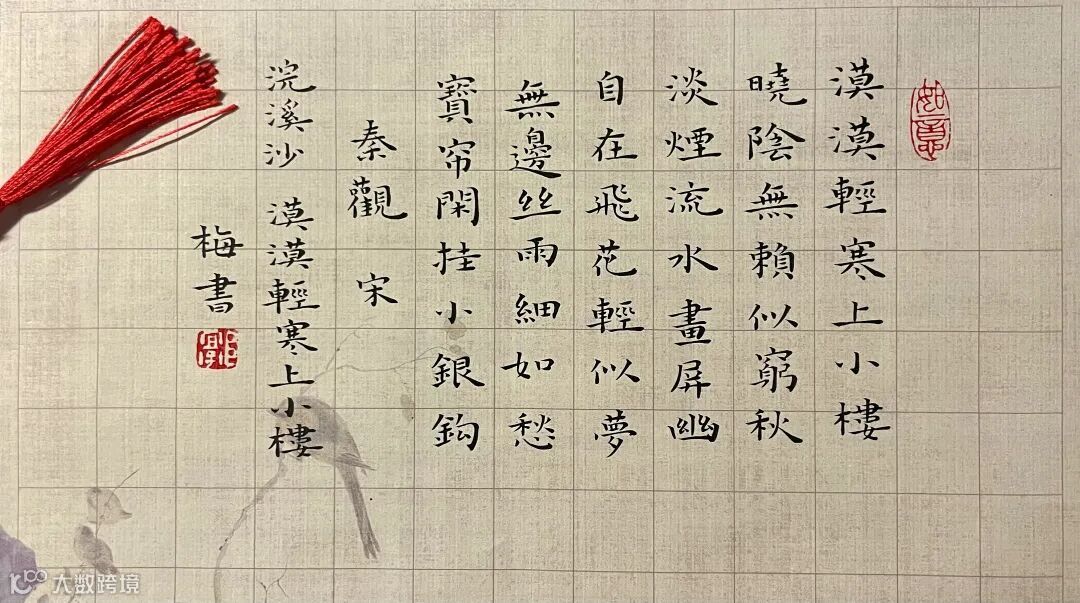 如意
漠漠輕寒上小樓
曉陰無賴似窮秋
淡煙流水畫屏幽
自在飛花輕似夢
無邊丝雨細如愁
寶帘閑挂小銀鈎
秦觀 宋
浣溪沙 漠漠輕寒上小樓
梅書
大数跨境